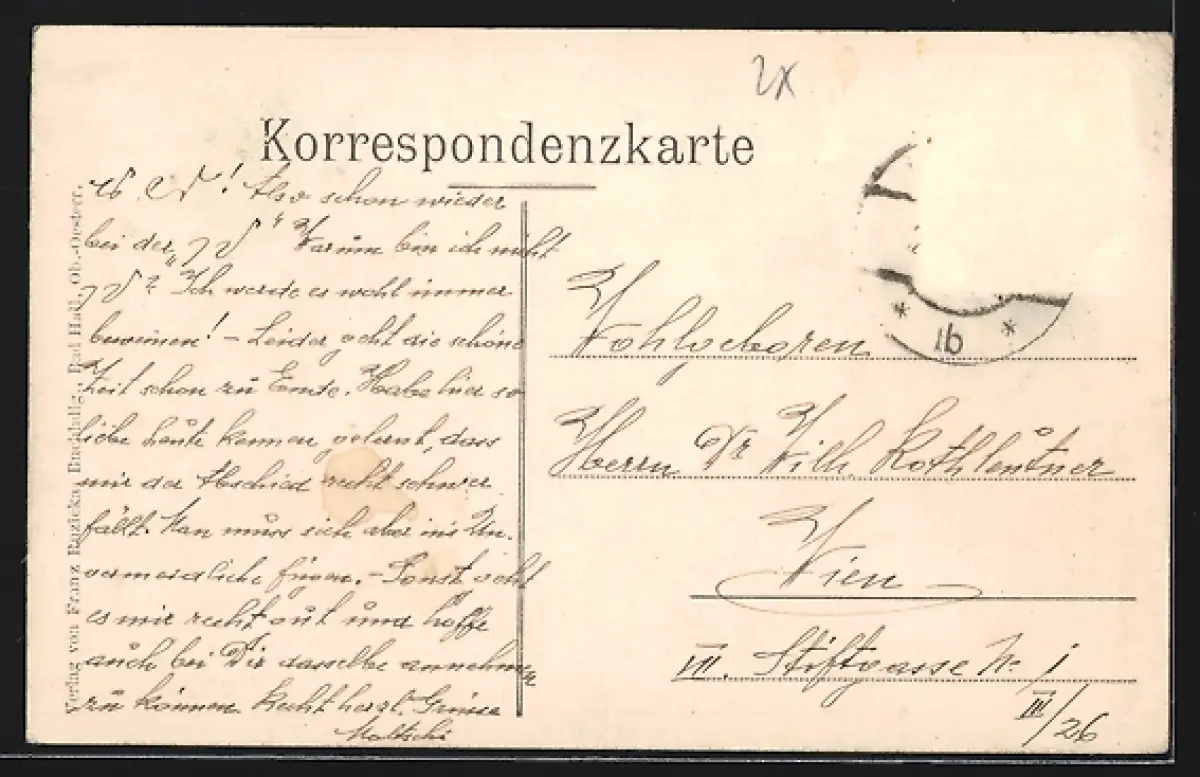 2x
Korrespondenzkarte
! Also schon wieder
bei der „ " Warum bin ich nicht
? Ich werde es wohl immer
beweinen! – Leider geht die schöne
Zeit schon zu Ende. Habe hier so
liebe Leute kennen gelernt, dass
mir der Abschied recht schwer
fällt. Man muss sich aber ins Un-
vermeidliche fügen. – Sonst geht
es mir recht gut und hoffe
auch bei Dir dasselbe annehmen
zu können. Recht herzl. Grüsse
Verlag von Franz Ruzicka, Buchhdlg., Bad Hall, Ob.-Oesterr.
* 1b *
Wohlgeboren
Herrn Dr Wilh. Rothleutner
Wien
VII. Stiftgasse Nr. 1
III/26